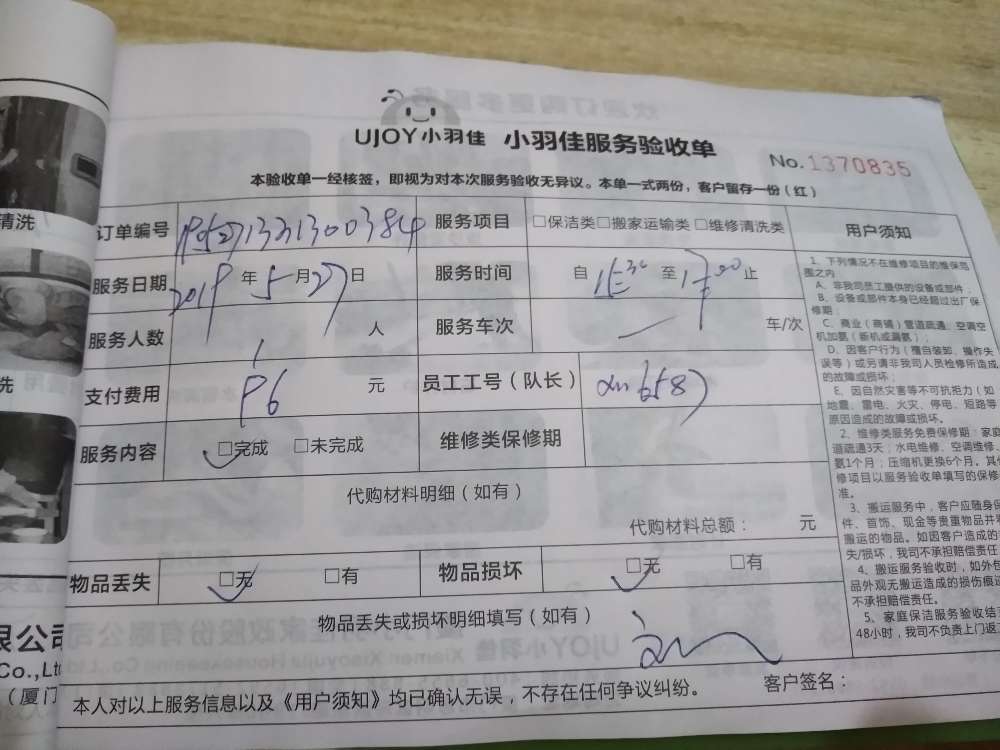 UJOY小羽佳 小羽佳服务验收单
No.1370835
本验收单一经核签，即视为对本次服务验收无异议。本单一式两份，客户留存一份（红）
订单编号
服务项目 □保洁类□搬家运输类 □维修清洗类
服务日期 2019 年 5 月 27 日
服务时间 自 15:30 至 17:00 止
服务人数 1 人
服务车次 — 车/次
支付费用 96 元
员工工号（队长）
服务内容 □完成 □未完成
维修类保修期
代购材料明细（如有）
代购材料总额： 元
物品丢失 □无 □有
物品损坏 □无 □有
物品丢失或损坏明细填写（如有）
客户签名：
本人对以上服务信息以及《用户须知》均已确认无误，不存在任何争议纠纷。
用户须知
1、下列情况不在维修项目的维保范
围之内
A、非我司员工提供的设备或部件；
B、设备或部件本身已经超过出厂保
修期；
C、商业（商铺）管道疏通、空调空
机加氨（新机或漏氨）；
D、因客户行为（擅自装卸、操作失
误等）或另请非我司人员检修所造成
的故障或损坏；
E、因自然灾害等不可抗拒力（如
地震、雷电、火灾、停电、短路等
原因造成的故障或损坏。
2、维修类服务免费保修期：家庭
道疏通3天；水电维修、空调维修、
氨1个月；压缩机更换6个月。其
修项目以服务验收单填写的保修
准。
3、搬运服务中，客户应随身保
件、首饰、现金等贵重物品并
搬运的物品。如因客户造成的
失/损坏，我司不承担赔偿责任
4、搬运服务验收时，如外包
品外观无搬运造成的损伤痕迹
不承担赔偿责任。
5、家庭保洁服务验收结
48小时，我司不负责上门返
清洗
洗
限公司
Co.,Ltd
（厦门